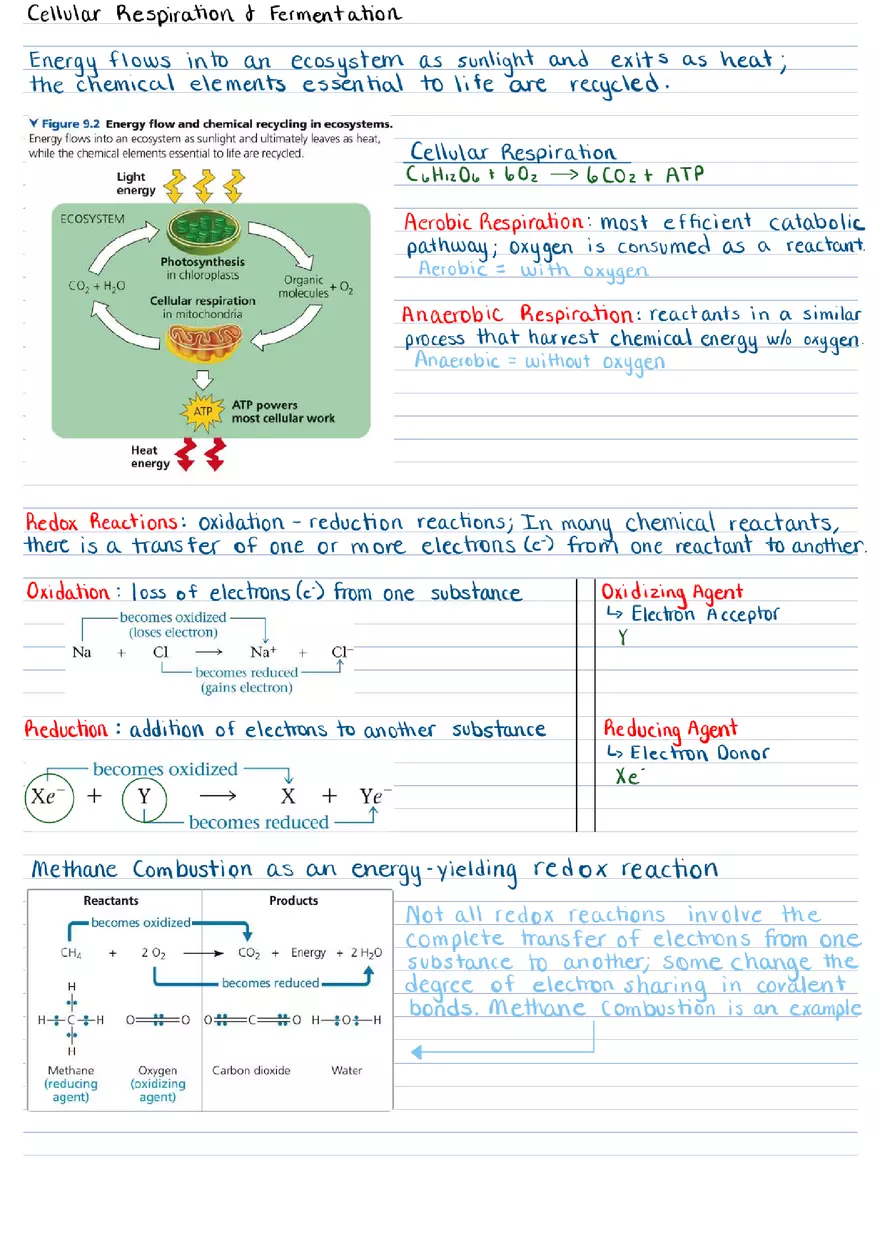 Cellular Respiration & Fermentation
Energy flows into an ecosystem as sunlight and exits as heat;
the chemical elements essential to life are recycled.
Figure 9.2 Energy flow and chemical recycling in ecosystems.
Energy flows into an ecosystem as sunlight and ultimately leaves as heat,
while the chemical elements essential to life are recycled.
Light
energy
ECOSYSTEM
Photosynthesis
in chloroplasts
CO₂ + H₂O
Organic
molecules + O₂
Cellular respiration
in mitochondria
ATP
ATP powers
most cellular work
Heat
energy
Cellular Respiration
C₆H₁₂O₆ + 6O₂ → 6CO₂ + ATP
Aerobic Respiration: most efficient catabolic
pathway; oxygen is consumed as a reactant.
Aerobic = with oxygen
Anaerobic Respiration: reactants in a similar
process that harvest chemical energy w/o oxygen.
Anaerobic = without oxygen
Redox Reactions: oxidation - reduction reactions; In many chemical reactants,
there is a transfer of one or more electrons (e⁻) from one reactant to another.
Oxidation: loss of electrons (e⁻) from one substance
becomes oxidized
(loses electron)
Na + Cl → Na⁺ + Cl⁻
becomes reduced
(gains electron)
Oxidizing Agent
↳ Electron Acceptor
Y
Reduction: addition of electrons to another substance
becomes oxidized
Xe⁻ + Y → X + Ye⁻
becomes reduced
Reducing Agent
↳ Electron Donor
Xe⁻
Methane Combustion as an energy-yielding redox reaction
Reactants Products
becomes oxidized
CH₄ + 2 O₂ → CO₂ + Energy + 2 H₂O
becomes reduced
H
H C H O O O C O H O H
H
Methane Oxygen Carbon dioxide Water
(reducing (oxidizing
agent) agent)
Not all redox reactions involve the
complete transfer of electrons from one
substance to another; some change the
degree of electron sharing in covalent
bonds. Methane Combustion is an example